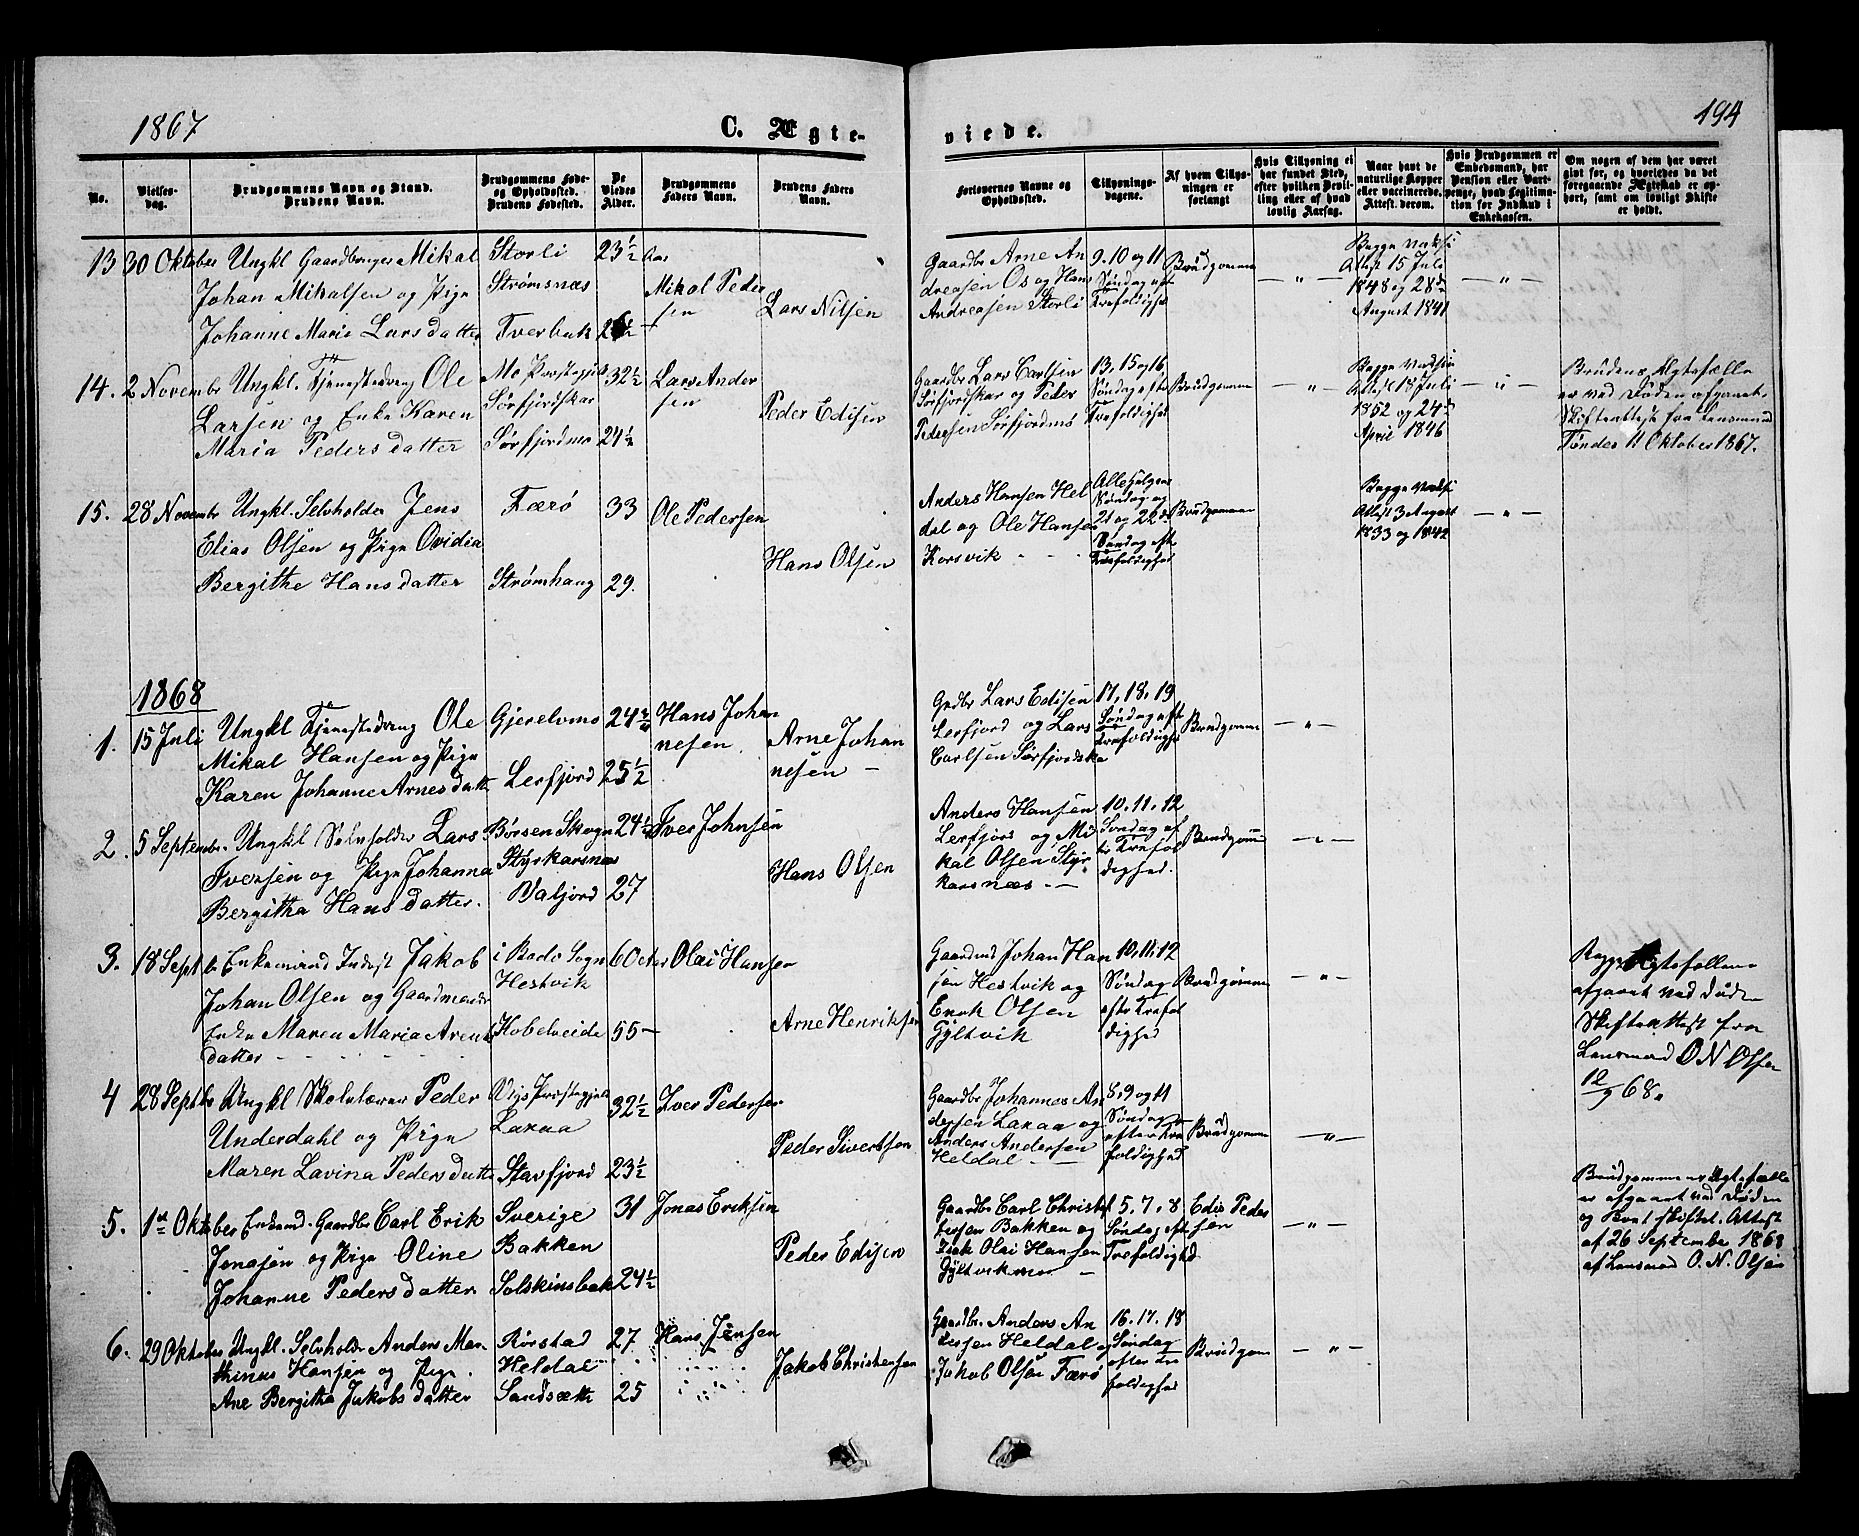 1867
C. Ægte-
viede.
194
No.
Vielses-
dag.
Brudgommens Navn og Stand.
Brudens Navn.
Brudgommens Føde-
og Opholdssted.
Brudens Fødested.
De
Viedes
Alder.
Brudgommens
Faders Navn.
Brudens Faders
Navn.
Forlovernes Navne og
Opholdssted.
Tillysnings-
dagene.
Af hvem Tillys-
ningen er
forlangt
Hvis Tillysning ei
har fundet Sted,
efter hvilken Bevil-
ling eller af hvad
lovlig Aarsag.
Naar havt de
naturlige Kopper
eller vaccinerede.
Attest. derom.
Hvis Brudgommen er
Embedsmand, har
Pension eller Vart-
penge, hvad Legitima-
tion for Indskud i
Enkekassen.
Om nogen af dem har været
givt før, og hvorledes da det
foregaaende Ægteskab er op-
hørt, samt om lovligt Skifte
er holdt.
13 30 Oktober Ungkl Gaardbruger Mikal
Johan Mikalsen og Pige
Johanne Maria Larsdatter
Storli
Strømsnæs
Tverbak
23½ Aar
Mikal Peder
sen
Lars Nilsen
Gaardbr Arne An
dreasen Os og Hans
Andreasen Storli
9. 10 og 11
Søndag eft
Trefoldighed
Brudgommen
— " —
Begge vaksi
Attest 15 Juli
1848 og 28de
August 1841
— " —
14. 2 November Ungkl. Tjenestedreng Ole
Larsen og Enke Karen
Maria Pedersdatter
Mo Præstegjeld
Sørfjordskar
Sørfjordmo
32½
24½
Lars Ander
sen
Peder Edisen
Gaardbr Lars Carlsen
Sørfjordskar og Peder
Pedersen Sørfjordmo
13, 15 og 16,
Søndag efter
Trefoldighed
Brudgommen
— " —
Begge vaksi
Attest 18 Juli
1852 og 24de
April 1846
— " —
Brudens Ægtefælle
er ved Døden afgaaet.
Skifteattest fra Lensmand
Tønder 11 Oktober 1867.
15. 28 Novembr Ungkl. Selvholder Jens
Elias Olsen og Pige Ovidia
Bergithe Hansdatter
Færø
Strømhaug
33
29.
Ole Pedersen
Hans Olsen
Anders Hansen Hel
dal og Ole Hansen
Korsvik
Allehelgens
Søndag og
21 og 22de
Søndag eft
Trefoldighed
Brudgommen
— " —
Begge vaksi
Attest 3 August
1833 og 1842
— " —
1868
1. 15 Juli Ungkl Tjenestedreng Ole
Mikal Hansen og Pige
Karen Johanne Arnesdatter
Gjerelvmo
Lerfjord
24¾
25½
Hans Johan
nesen
Arne Johan
nesen —
Grdbr Lars Edisen
Lerfjord og Lars
Carlsen Sørfjordska
17, 18, 19
Søndag eft
Trefoldighed
Brudgommen
— " —
2. 5 Septembr. Ungkl Selvholder Lars
Iversen og Pige Johanna
Bergitha Hansdatter.
Børsen Skogn
Styrkarsnæs
Baljord
24½
27
Iver Johnsen
Hans Olsen
Anders Hansen
Lerfjord og Mi
kal Olsen Styr
karsnæs —
10. 11. 12
Søndag ef
ter Trefol
dighed.
Brudgommen
— " —
3. 18 Septbr Enkemand Inderst Jakob
Johan Olsen og Gaardmands
Enke Maren Maria Arents
datter
i Bodø Sogn
Hestvik
Kobelveide
60
55 —
Olai Hansen
Arne Henriksen
Gaardmd Johan Han
sen Hestvik og
Enok Olsen
Gyltvik
10, 11. 12
Søndag
efter Trefol
dighed
Brudgommen
— " —
Begges Ægtefæller
afgaaet ved Døden
Skifteattest fra
Lensmand O N Olsen
12/9 68.
4 28 Septbr Ungkl Skolelærer Peder
Underdahl og Pige
Maren Lavina Pedersdatter
Vigs Præstegjeld
Laxaa
Stavfjord
32½
23½
Iver Pedersen
Peder Sivertsen
Gaardbr Johannes An
dersen Laxaa og
Anders Andersen
Heldal —
8. 9 og 11
Søndag
efter Tre
foldighed
Brudgommen
— " —
5. 1ste Oktober Enkemd. Gaardbr Carl Erik
Jonasen og Pige Oline
Johanne Pedersdatter
Sverige
Bakken
Solskinsbak
31
24½
Jonas Eriksen
Peder Edisen
Gaardbr Carl Christof
fersen Bakken og
Olai Hansen
Gyltvik —
5. 7. 8
Søndag eft
Trefoldighd.
Edis Peder
sen
— " —
Brudgommens Ægtefælle
er afgaaet ved Døden
og Boet skiftet. Attest
af 26 September 1868
af Lensmd O. N. Olsen
6. 29 Oktober Ungkl. Selvholder Anders Mar
thinus Hansen og Pige
Ane Bergitha Jakobsdatter
Rørstad
Heldal
Sandsætt
27
25
Hans Jensen
Jakob Christensen
Gaardbr. Anders An
dersen Heldal og
Jakob Olsen Færø
16. 17. 18
Søndag
efter Tre
foldighed
Brudgom
— " —